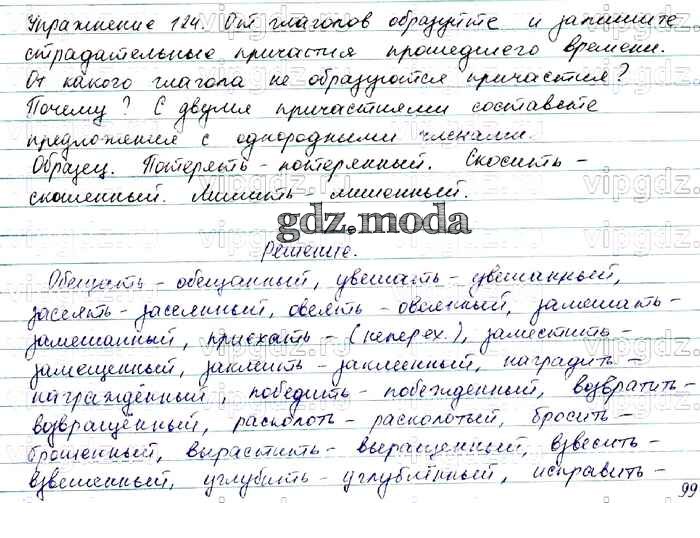 Упражнение 124. От глаголов образуйте и запишите
страдательные причастия прошедшего времени.
От какого глагола не образуются причастия?
Почему? С двумя причастиями составьте
предложения с однородными членами.
Образец. Потерять - потерянный. Скосить -
скошенный. Лишить - лишенный.
gdz.moda
Решение.
Обещать - обещанный, увешать - увешанный,
засеять - засеянный, овеять - овеянный, замешать -
замешанный, приехать - (неперех.), заместить -
замещенный, заклеить - заклеенный, наградить -
награждённый, победить - побежденный, возвратить -
возвращённый, расколоть - расколотый, бросить -
брошенный, вырастить - выращенный, взвесить -
взвешенный, углубить - углублённый, исправить -
99